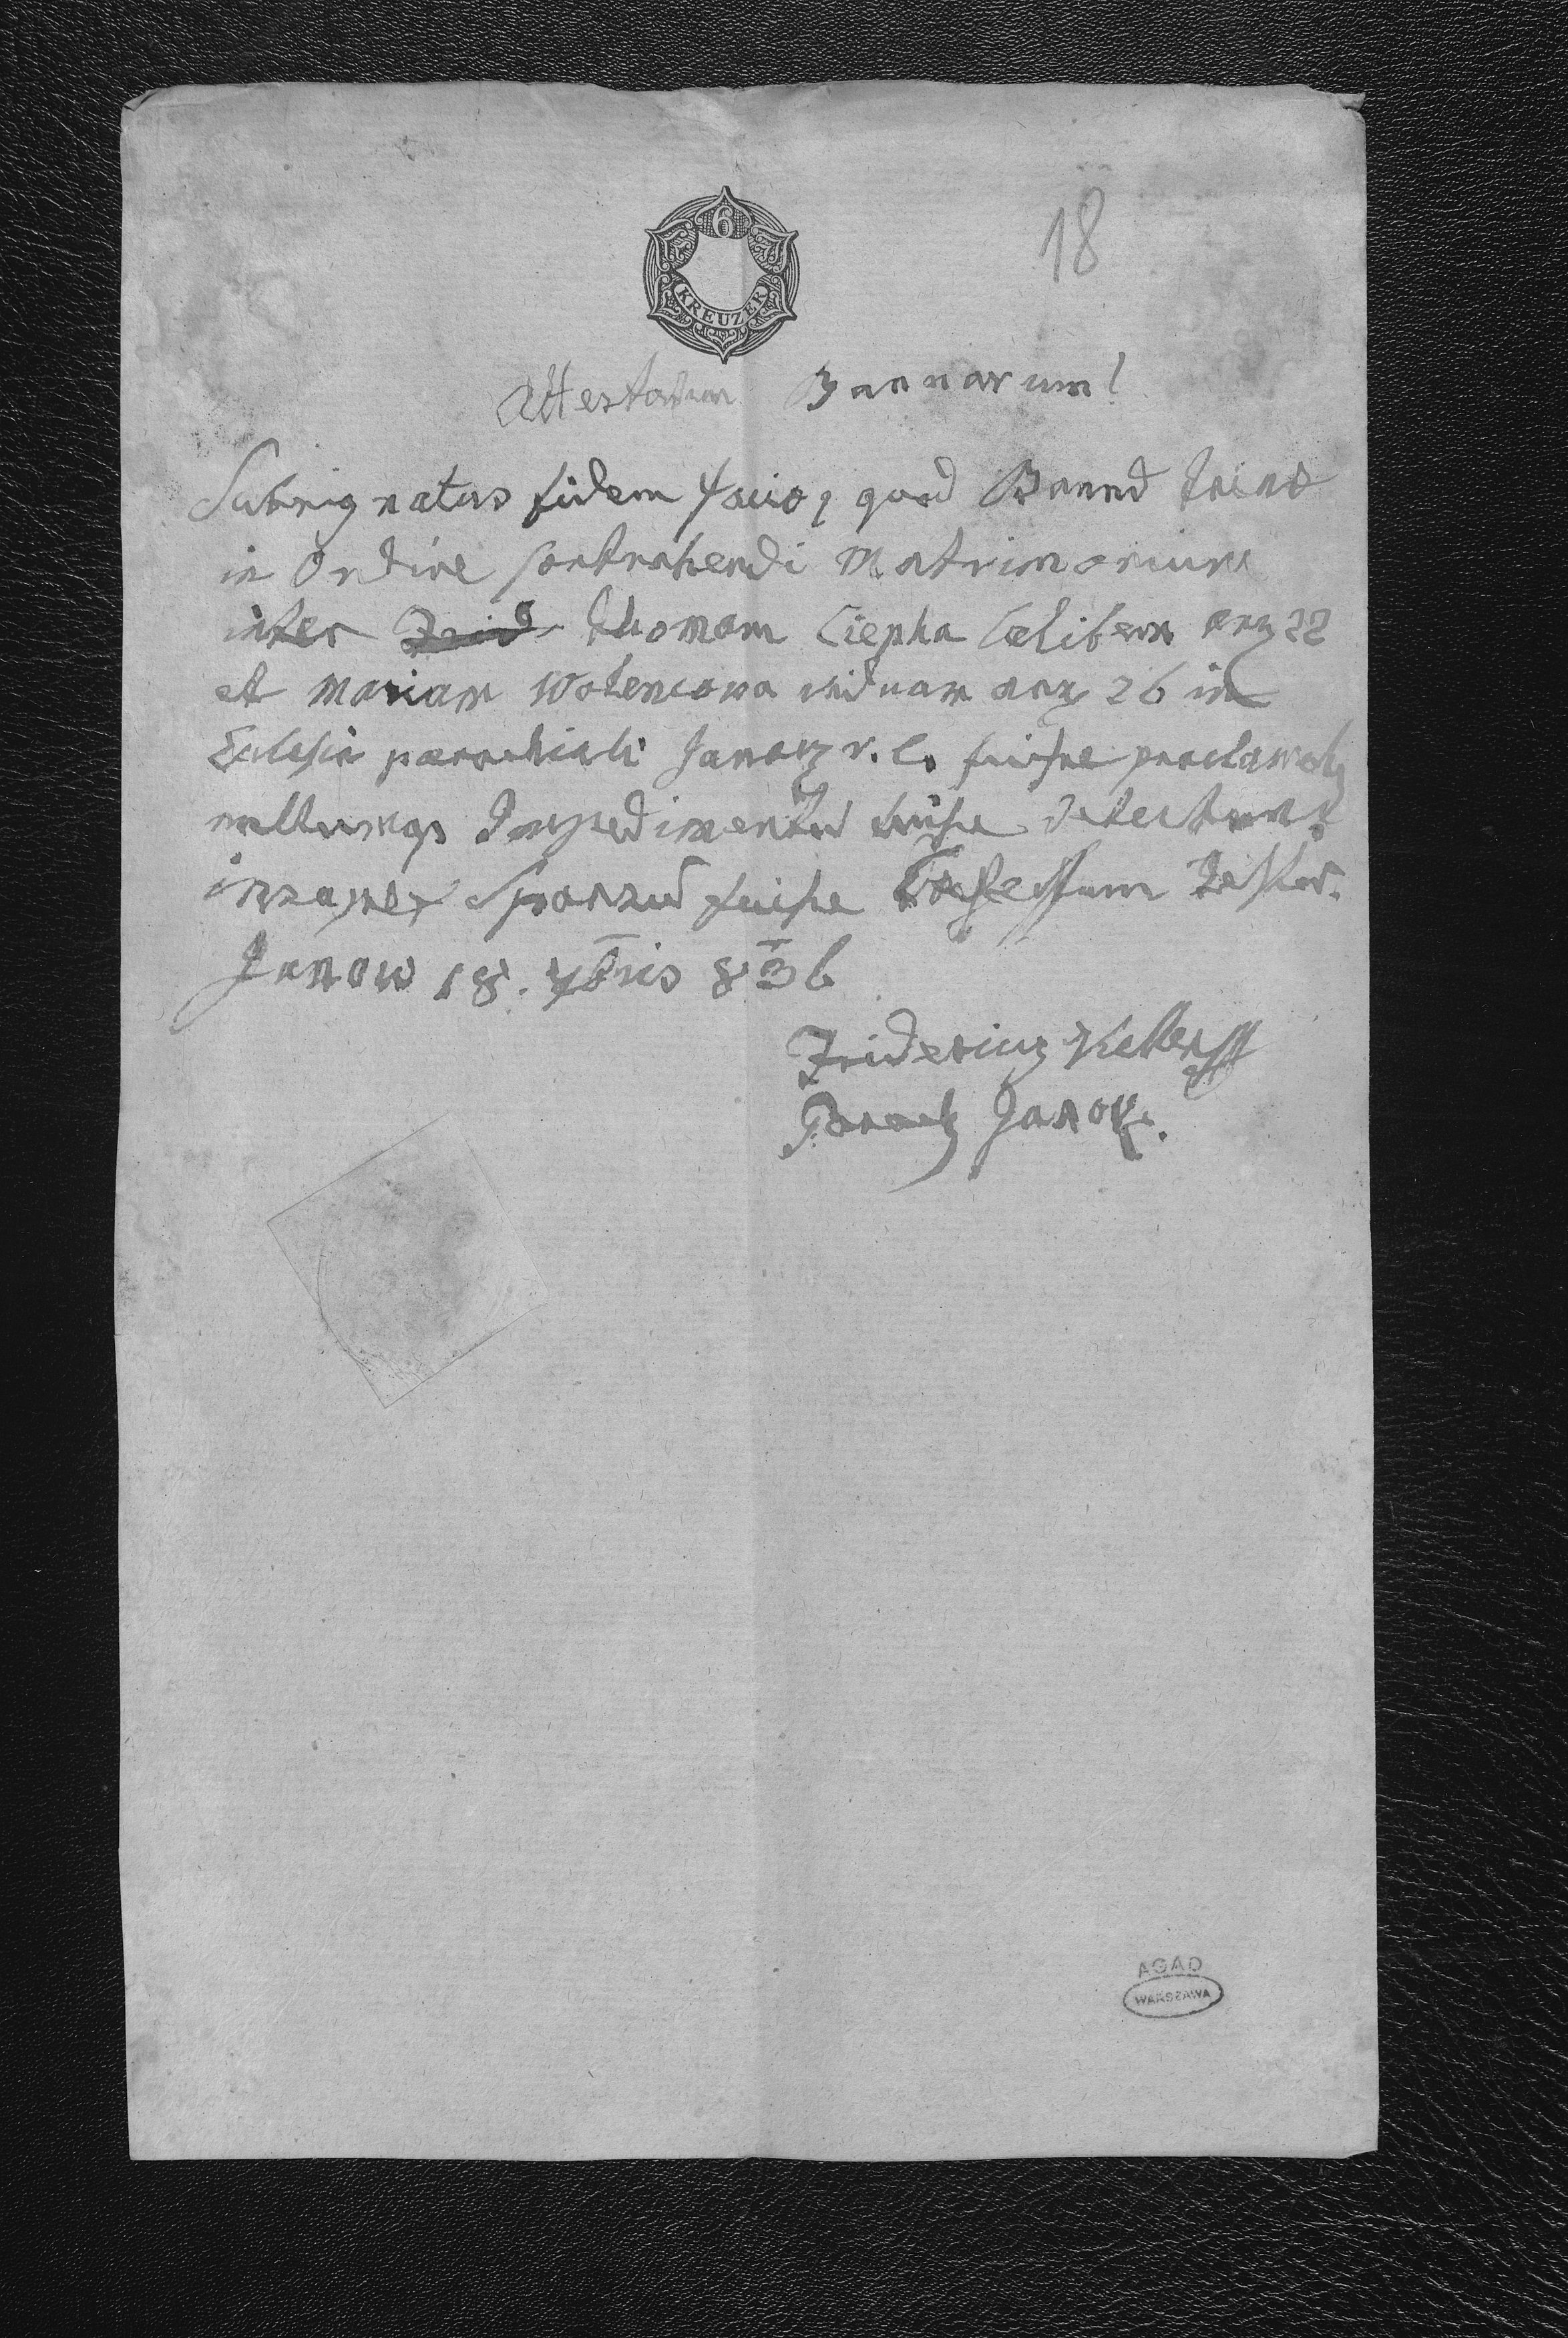 6
KREUZER
18
Attestatum Bannarum!
Subsignatus fidem facio, quod Bannd trind
in Ordine contrahendi Matrimonium
inter Thomam Ciepka Celibem anz 22
et Mariam Wolencowa viduam anz 26 in
Eclesia parochiali Janovz r. l. fuisse proclamatz
nullumqs Impedimentud fuisse detectum.
Sponsud fuisse
Janow 18. 7bris 836
Fridericuz
Parochz Janov.
AGAD
WARSZAWA